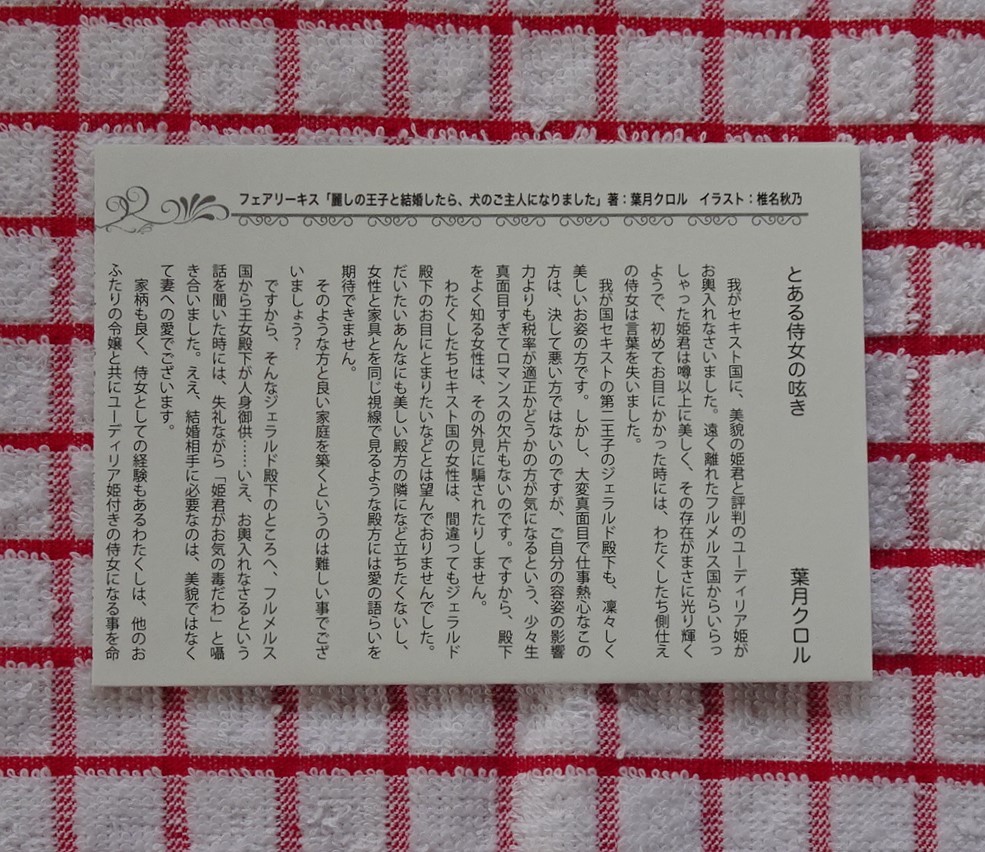 フェアリーキス「麗しの王子と結婚したら、犬のご主人になりました」著：葉月クロル　イラスト：椎名秋乃
とある侍女の呟き
葉月クロル
我がセキスト国に、美貌の姫君と評判のユーディリア姫が
お輿入れなさいました。遠く離れたフルメルス国からいらっ
しゃった姫君は噂以上に美しく、その存在がまさに光り輝く
ようで、初めてお目にかかった時には、わたくしたち側仕え
の侍女は言葉を失いました。
我が国セキストの第二王子のジェラルド殿下も、凜々しく
美しいお姿の方です。しかし、大変真面目で仕事熱心なこの
方は、決して悪い方ではないのですが、ご自分の容姿の影響
力よりも税率が適正かどうかの方が気になるという、少々生
真面目すぎてロマンスの欠片もないのです。ですから、殿下
をよく知る女性は、その外見に騙されたりしません。
わたくしたちセキスト国の女性は、間違ってもジェラルド
殿下のお目にとまりたいなどとは望んでおりませんでした。
だいたいあんなにも美しい殿方の隣になど立ちたくないし、
女性と家具とを同じ視線で見るような殿方には愛の語らいを
期待できません。
そのような方と良い家庭を築くというのは難しい事でござ
いましょう？
ですから、そんなジェラルド殿下のところへ、フルメルス
国から王女殿下が人身御供……いえ、お輿入れなさるという
話を聞いた時には、失礼ながら「姫君がお気の毒だわ」と囁
き合いました。ええ、結婚相手に必要なのは、美貌ではなく
て妻への愛でございます。
家柄も良く、侍女としての経験もあるわたくしは、他のお
ふたりの令嬢と共にユーディリア姫付きの侍女になる事を命